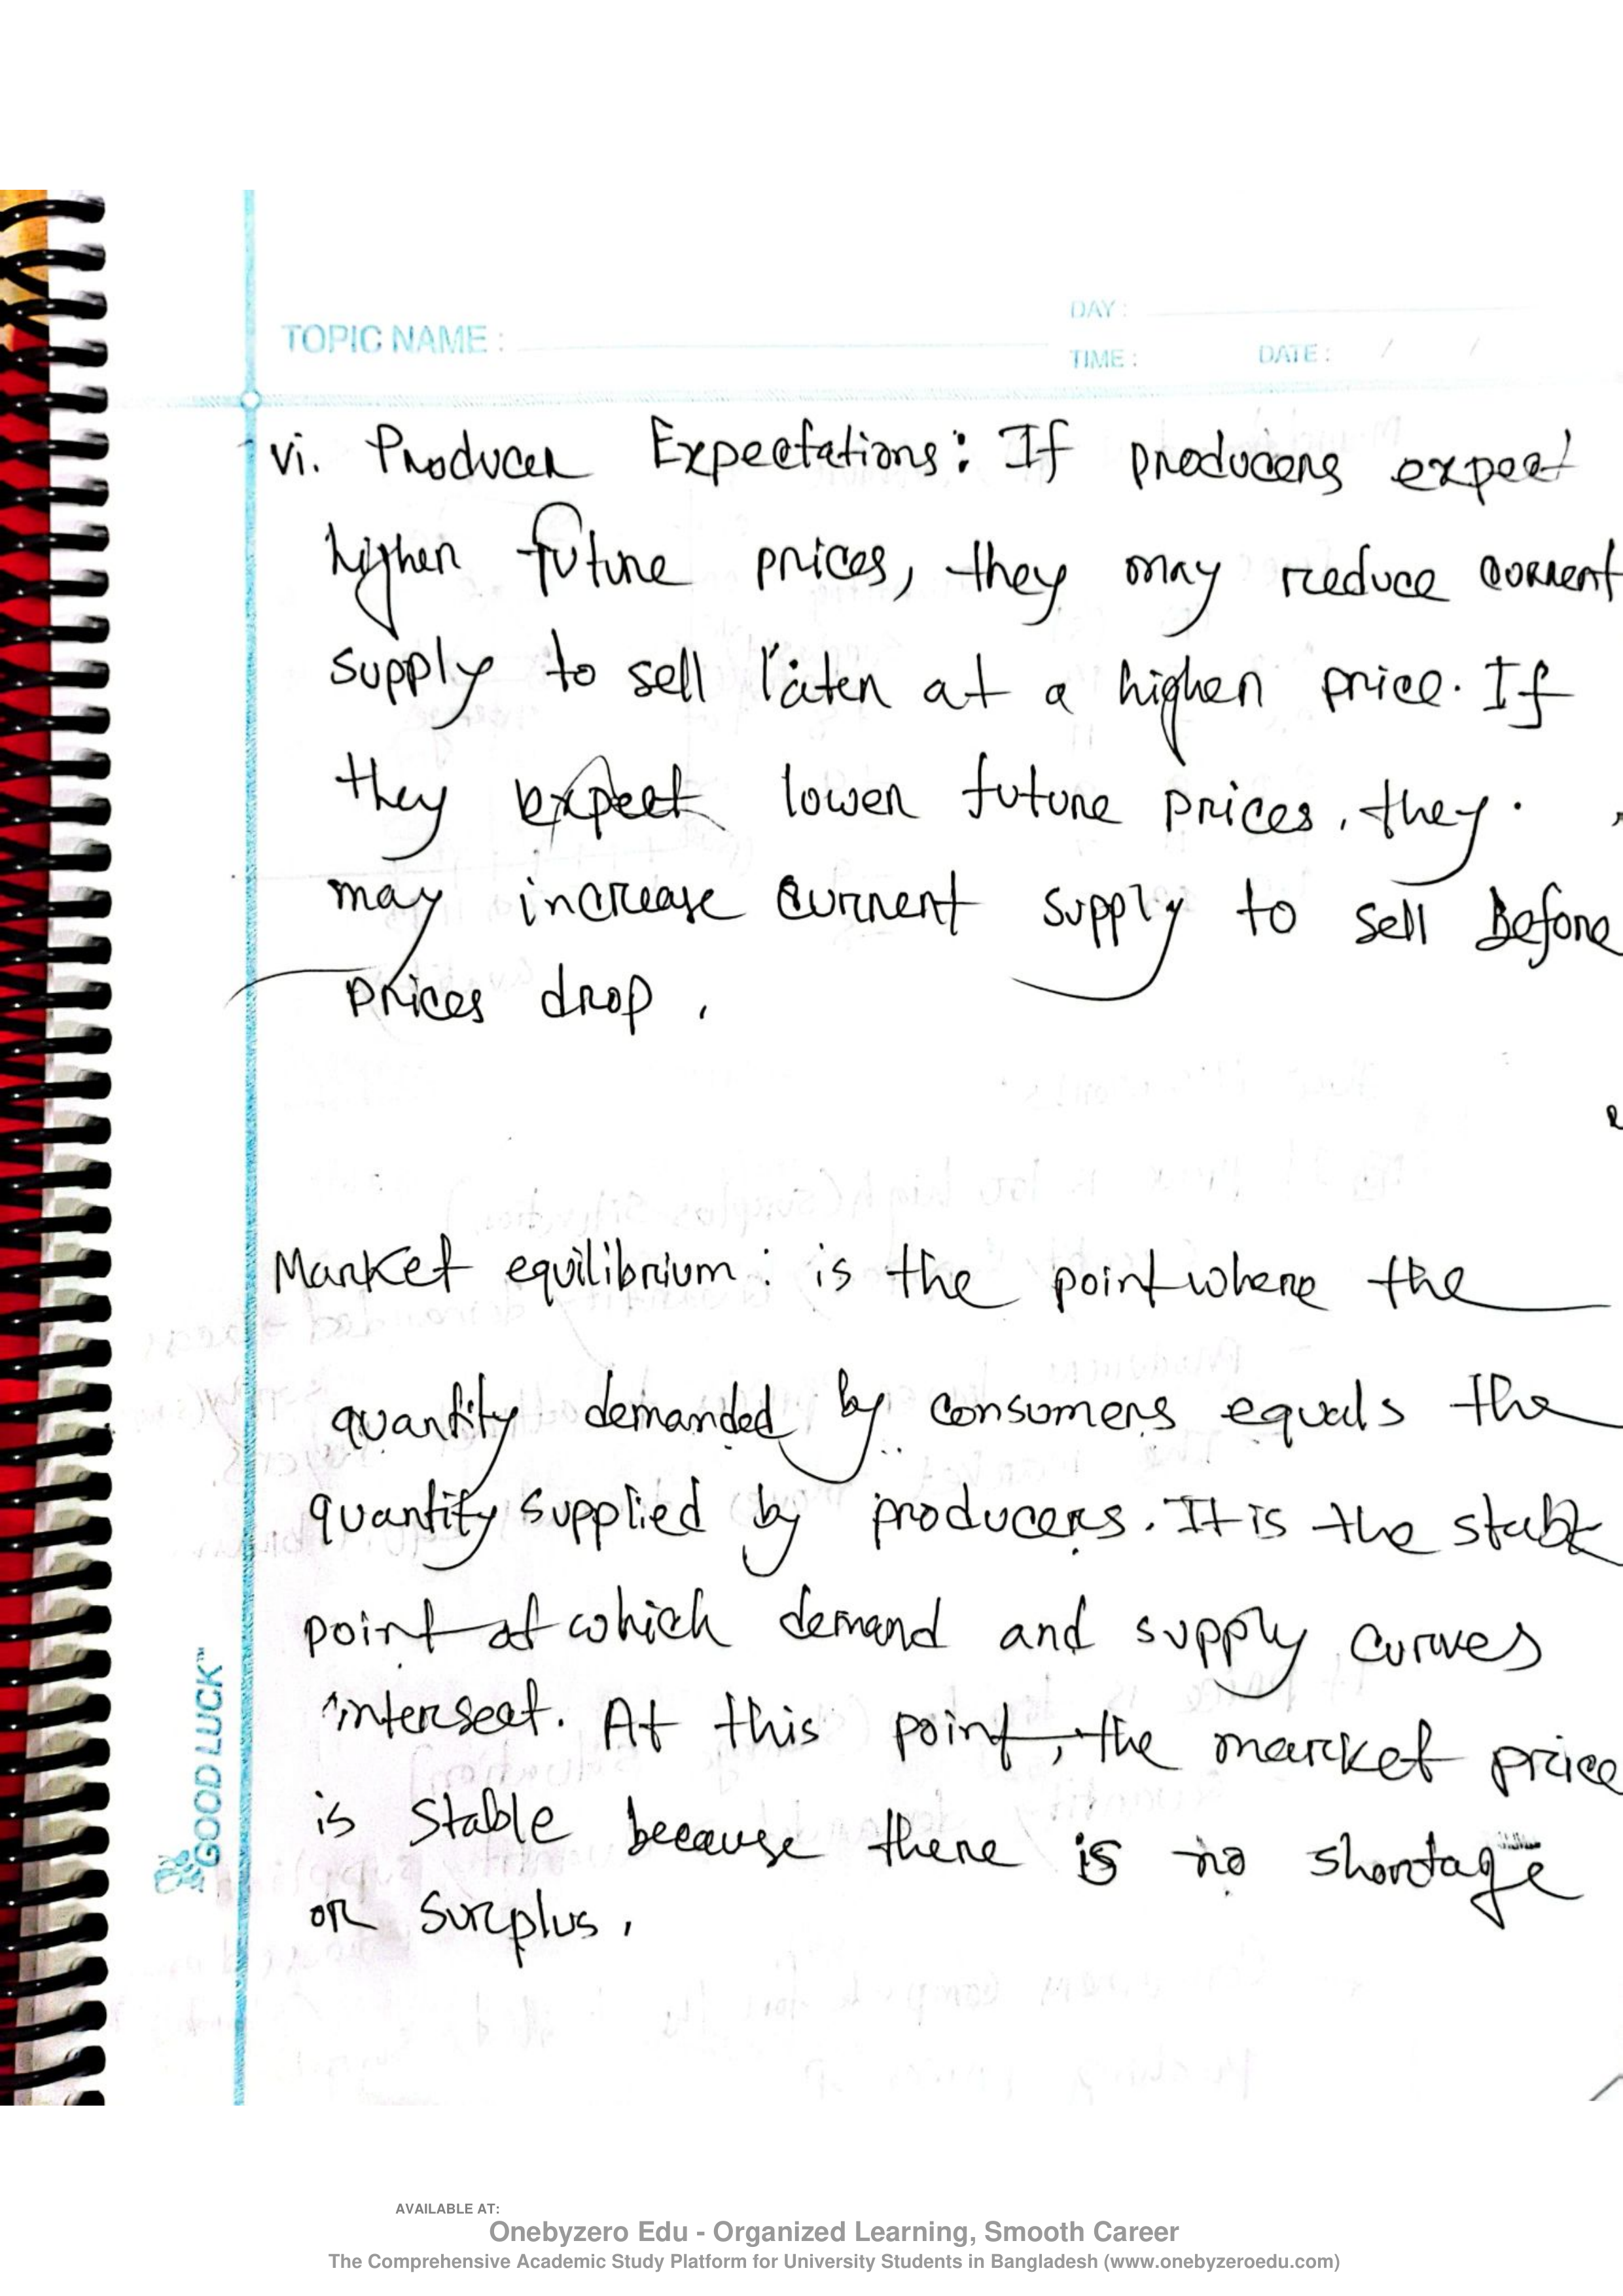 TOPIC NAME :
DAY :
TIME :
DATE : / /
vi. Producer Expectations: If producers expect
higher future prices, they may reduce current
supply to sell later at a higher price. If
they expect lower future prices, they.
may increase current supply to sell Before
prices drop.
Market equilibrium : is the point where the
quantity demanded by consumers equals the
quantity supplied by producers. It is the stable
point at which demand and supply curves
intersect. At this point, the market price
is stable because there is no shortage
or surplus.
GOOD LUCK™
AVAILABLE AT:
Onebyzero Edu - Organized Learning, Smooth Career
The Comprehensive Academic Study Platform for University Students in Bangladesh (www.onebyzeroedu.com)